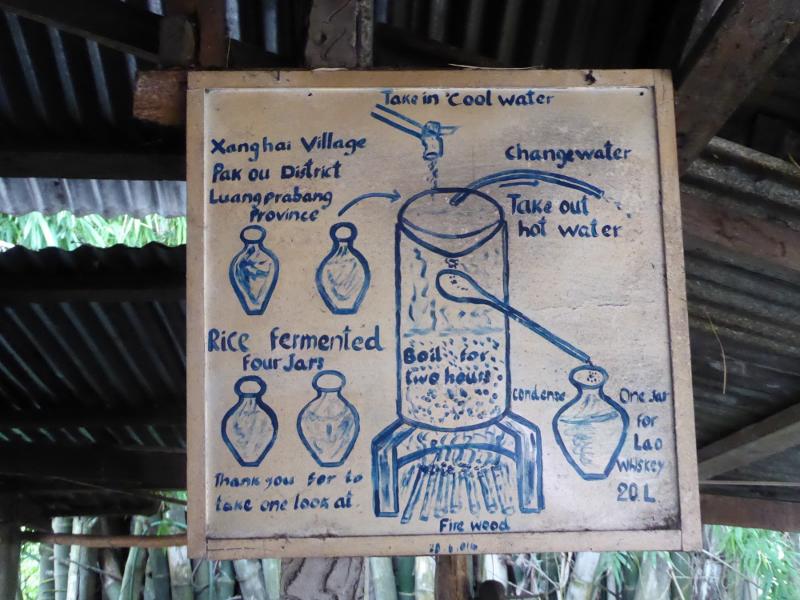 Take in Cool water
Xanghai Village
Pak ou District
Luangprabang
Province
Changewater
Take out
hot water
Rice fermented
Four Jars
Boil for
two hours
Condense
One Jar
for
Lao
Whiskey
20 L
Thank you for to
take one look at
Fire wood